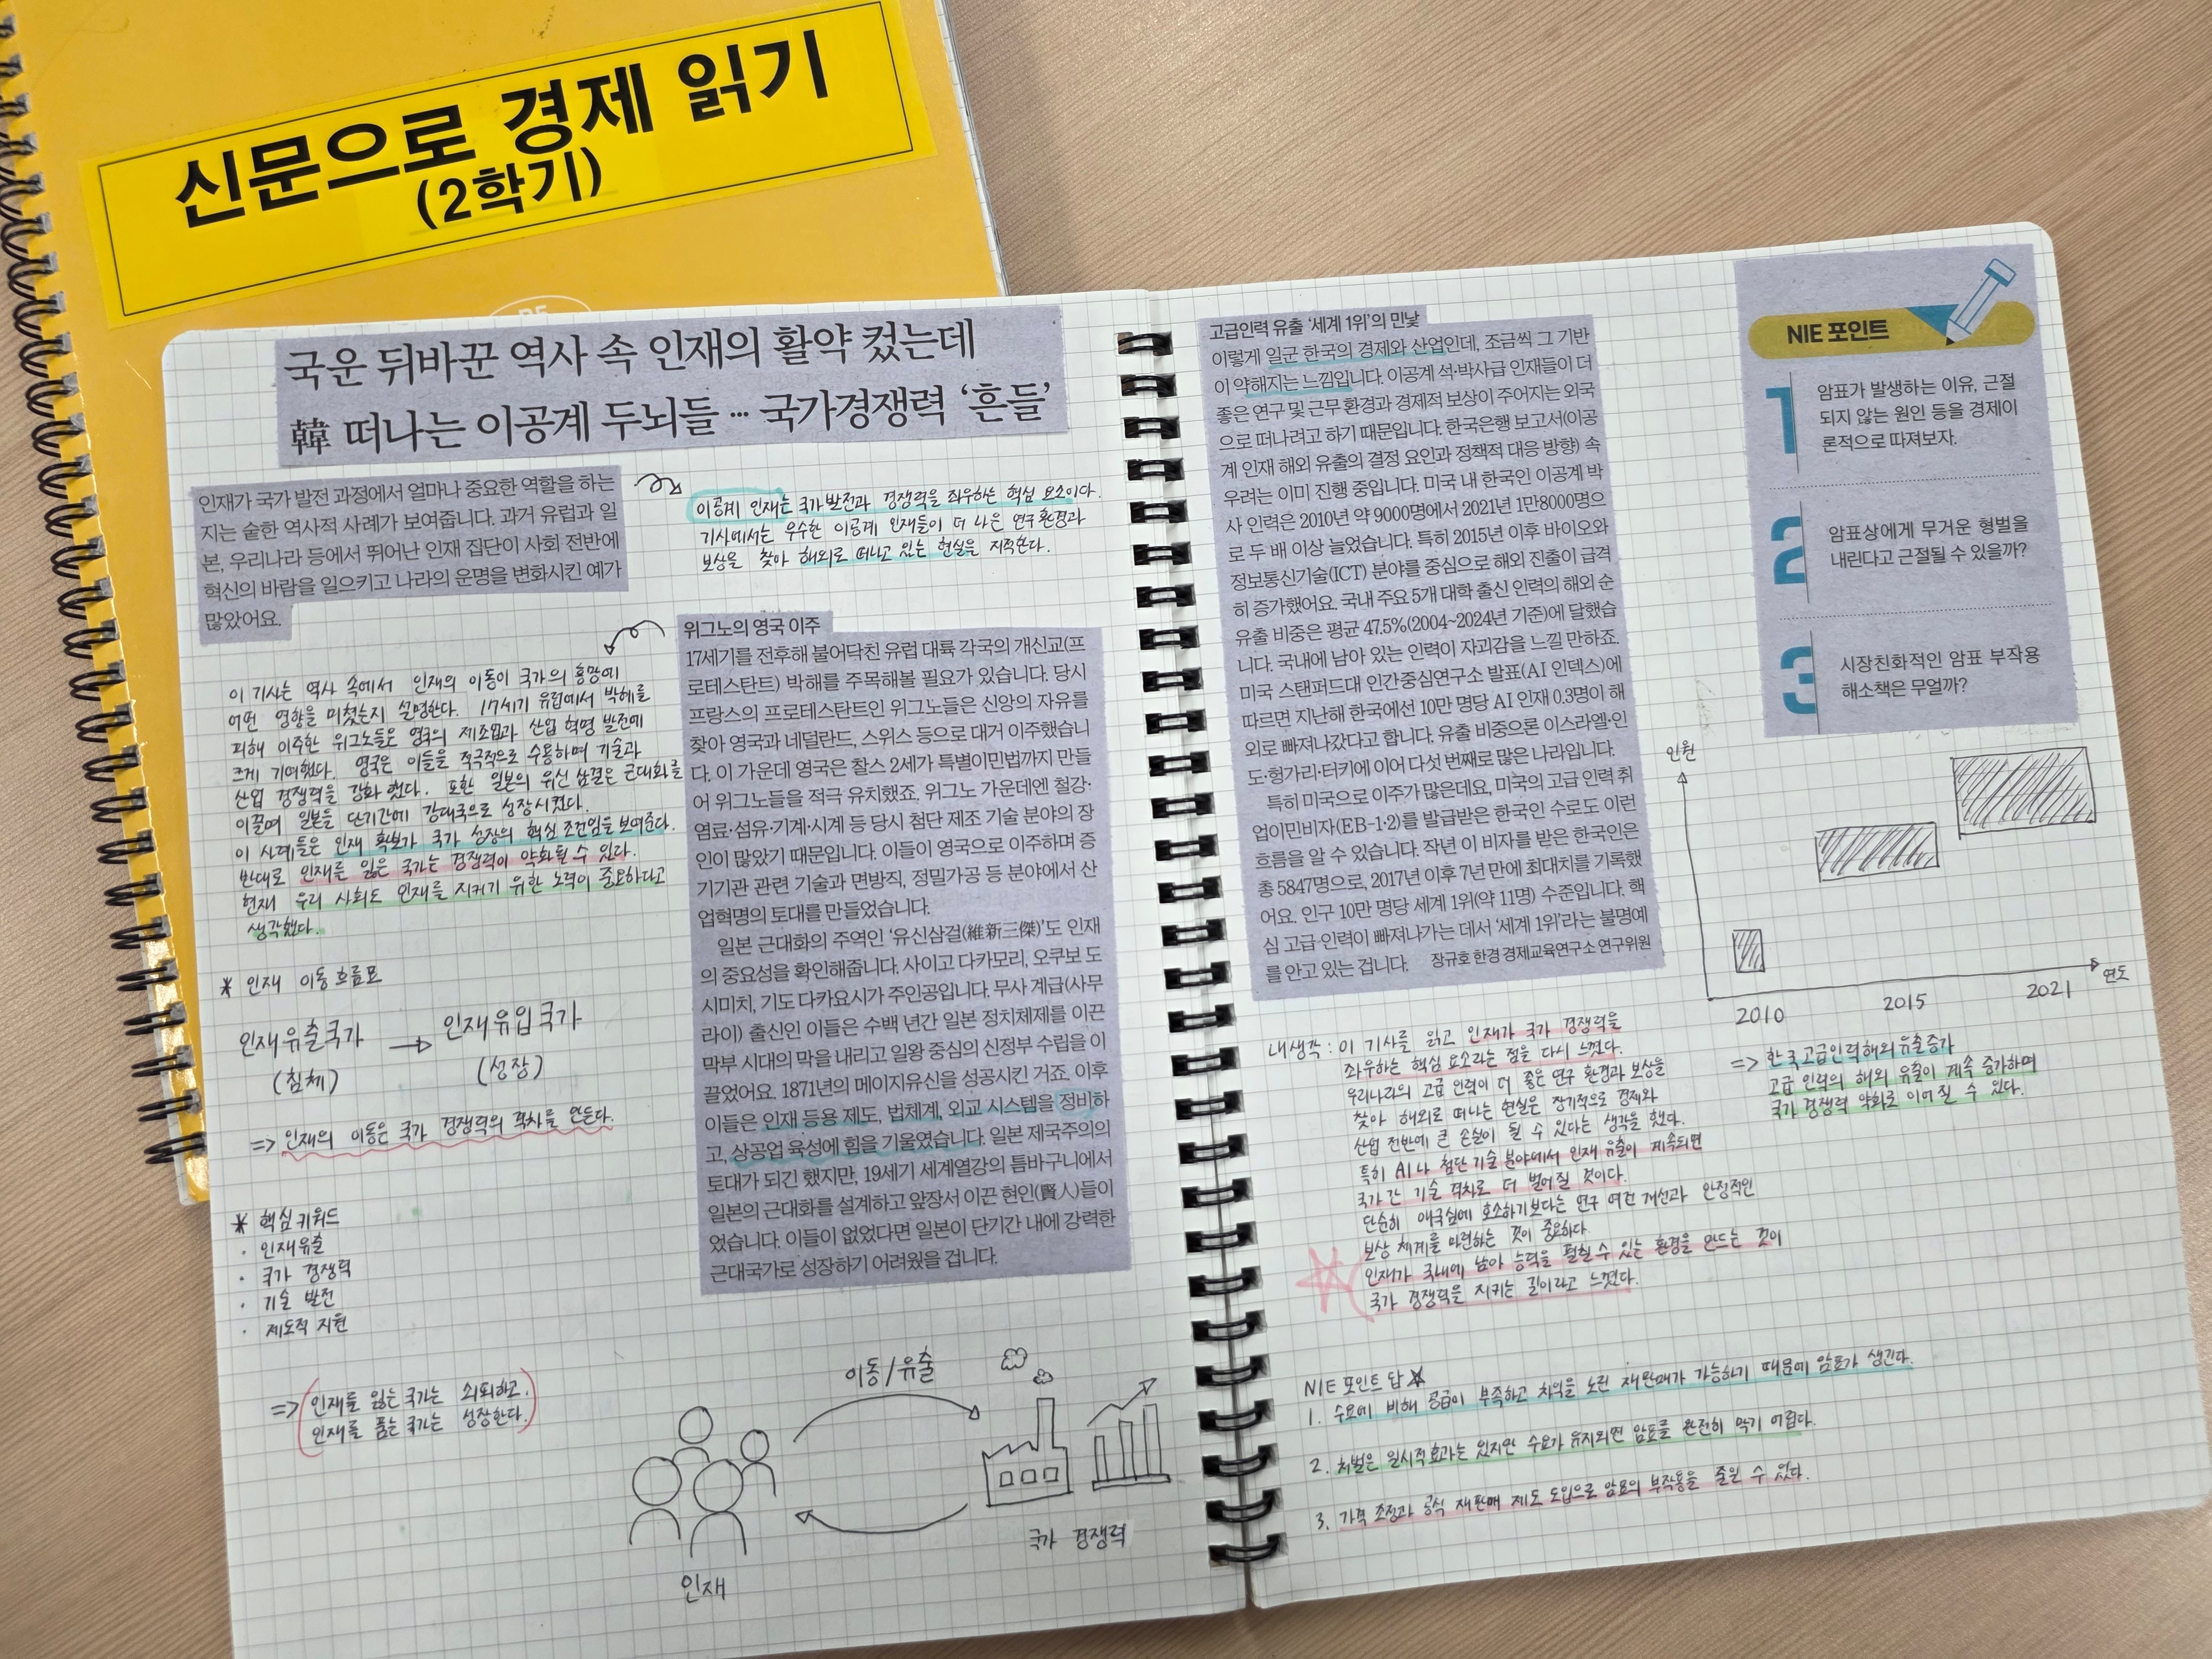 신문으로 경제 읽기
(2학기)
국운 뒤바꾼 역사 속 인재의 활약 컸는데
韓 떠나는 이공계 두뇌들 … 국가경쟁력 ‘흔들’
인재가 국가 발전 과정에서 얼마나 중요한 역할을 하는
지는 숱한 역사적 사례가 보여줍니다. 과거 유럽과 일
본, 우리나라 등에서 뛰어난 인재 집단이 사회 전반에
혁신의 바람을 일으키고 나라의 운명을 변화시킨 예가
많았어요.
이공계 인재는 국가발전과 경쟁력을 좌우하는 핵심 요소이다.
기사에서는 우수한 이공계 인재들이 더 나은 연구환경과
보상을 찾아 해외로 떠나고 있는 현실을 지적한다.
이 기사는 역사 속에서 인재의 이동이 국가의 흥망에
어떤 영향을 미쳤는지 설명한다. 17세기 유럽에서 박해를
피해 이주한 위그노들은 영국의 제조업과 산업 혁명 발전에
크게 기여했다. 영국은 이들을 적극적으로 수용하며 기술과
산업 경쟁력을 강화했다. 또한 일본의 유신 삼걸은 근대화를
이끌며 일본을 단기간에 강대국으로 성장시켰다.
이 사례들은 인재 확보가 국가 성장의 핵심 조건임을 보여준다.
반대로 인재를 잃은 국가는 경쟁력이 약화될 수 있다.
현재 우리 사회도 인재를 지키기 위한 노력이 중요하다고
생각했다.
* 인재 이동 흐름표
인재유출국가 → 인재유입국가
(침체) (성장)
=> 인재의 이동은 국가 경쟁력의 격차를 만든다.
* 핵심키워드
· 인재유출
· 국가 경쟁력
· 기술 발전
· 제도적 지원
=> 인재를 잃는 국가는 쇠퇴하고,
인재를 품는 국가는 성장한다.
위그노의 영국 이주
17세기를 전후해 불어닥친 유럽 대륙 각국의 개신교(프
로테스탄트) 박해를 주목해볼 필요가 있습니다. 당시
프랑스의 프로테스탄트인 위그노들은 신앙의 자유를
찾아 영국과 네덜란드, 스위스 등으로 대거 이주했습니
다. 이 가운데 영국은 찰스 2세가 특별이민법까지 만들
어 위그노들을 적극 유치했죠. 위그노 가운데엔 철강·
염료·섬유·기계·시계 등 당시 첨단 제조 기술 분야의 장
인이 많았기 때문입니다. 이들이 영국으로 이주하며 증
기기관 관련 기술과 면방직, 정밀가공 등 분야에서 산
업혁명의 토대를 만들었습니다.
일본 근대화의 주역인 ‘유신삼걸(維新三傑)’도 인재
의 중요성을 확인해줍니다. 사이고 다카모리, 오쿠보 도
시미치, 기도 다카요시가 주인공입니다. 무사 계급(사무
라이) 출신인 이들은 수백 년간 일본 정치체제를 이끈
막부 시대의 막을 내리고 일왕 중심의 신정부 수립을 이
끌었어요. 1871년의 메이지유신을 성공시킨 거죠. 이후
이들은 인재 등용 제도, 법체계, 외교 시스템을 정비하
고, 상공업 육성에 힘을 기울였습니다. 일본 제국주의의
토대가 되긴 했지만, 19세기 세계열강의 틈바구니에서
일본의 근대화를 설계하고 앞장서 이끈 현인(賢人)들이
었습니다. 이들이 없었다면 일본이 단기간 내에 강력한
근대국가로 성장하기 어려웠을 겁니다.
이동/유출
인재
국가 경쟁력
고급인력 유출 ‘세계 1위’의 민낯
이렇게 일군 한국의 경제와 산업인데, 조금씩 그 기반
이 약해지는 느낌입니다. 이공계 석·박사급 인재들이 더
좋은 연구 및 근무 환경과 경제적 보상이 주어지는 외국
으로 떠나려고 하기 때문입니다. 한국은행 보고서(이공
계 인재 해외 유출의 결정 요인과 정책적 대응 방향) 속
우려는 이미 진행 중입니다. 미국 내 한국인 이공계 박
사 인력은 2010년 약 9000명에서 2021년 1만8000명으
로 두 배 이상 늘었습니다. 특히 2015년 이후 바이오와
정보통신기술(ICT) 분야를 중심으로 해외 진출이 급격
히 증가했어요. 국내 주요 5개 대학 출신 인력의 해외 순
유출 비중은 평균 47.5%(2004~2024년 기준)에 달했습
니다. 국내에 남아 있는 인력이 자괴감을 느낄 만하죠.
미국 스탠퍼드대 인간중심연구소 발표(AI 인덱스)에
따르면 지난해 한국에선 10만 명당 AI 인재 0.3명이 해
외로 빠져나갔다고 합니다. 유출 비중으론 이스라엘·인
도·헝가리·터키에 이어 다섯 번째로 많은 나라입니다.
특히 미국으로 이주가 많은데요, 미국의 고급 인력 취
업이민비자(EB-1·2)를 발급받은 한국인 수로도 이런
흐름을 알 수 있습니다. 작년 이 비자를 받은 한국인은
총 5847명으로, 2017년 이후 7년 만에 최대치를 기록했
어요. 인구 10만 명당 세계 1위(약 11명) 수준입니다. 핵
심 고급 인력이 빠져나가는 데서 ‘세계 1위’라는 불명예
를 안고 있는 겁니다. 장규호 한경 경제교육연구소 연구위원
NIE 포인트
1 암표가 발생하는 이유, 근절
되지 않는 원인 등을 경제이
론적으로 따져보자.
2 암표상에게 무거운 형벌을
내린다고 근절될 수 있을까?
3 시장친화적인 암표 부작용
해소책은 무얼까?
인원
연도
2010 2015 2021
=> 한국고급인력해외유출증가
고급 인력의 해외 유출이 계속 증가하며
국가 경쟁력 약화로 이어질 수 있다.
내생각 : 이 기사를 읽고 인재가 국가 경쟁력을
좌우하는 핵심 요소라는 점을 다시 느꼈다.
우리나라의 고급 인력이 더 좋은 연구 환경과 보상을
찾아 해외로 떠나는 현실은 장기적으로 경제와
산업 전반에 큰 손실이 될 수 있다는 생각을 했다.
특히 AI나 첨단기술 분야에서 인재 유출이 계속되면
국가 간 기술 격차로 더 벌어질 것이다.
단순히 애국심에 호소하기보다는 연구 여건 개선과 안정적인
보상 체계를 마련하는 것이 중요하다.
인재가 국내에 남아 능력을 펼칠 수 있는 환경을 만드는 것이
국가 경쟁력을 지키는 길이라고 느꼈다.
NIE 포인트 답
1. 수요에 비해 공급이 부족하고 차익을 노린 재판매가 가능하기 때문에 암표가 생긴다.
2. 처벌은 일시적효과는 있지만 수요가 유지되면 암표를 완전히 막기 어렵다.
3. 가격 조정과 공식 재판매 제도 도입으로 암표의 부작용을 줄일 수 있다.